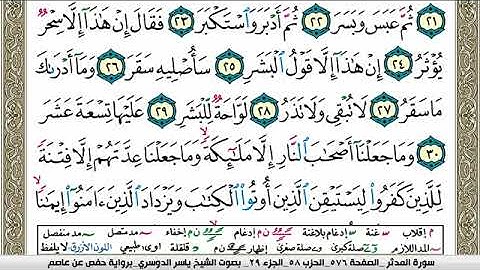 ٢١ ثُمَّ عَبَسَ وَبَسَرَ ٢٢ ثُمَّ أَدۡبَرَ وَٱسۡتَكۡبَرَ ٢٣ فَقَالَ إِنۡ هَٰذَآ إِلَّا سِحۡرٞ
يُؤۡثَرُ ٢٤ إِنۡ هَٰذَآ إِلَّا قَوۡلُ ٱلۡبَشَرِ ٢٥ سَأُصۡلِيهِ سَقَرَ ٢٦ وَمَآ أَدۡرَىٰكَ
مَا سَقَرُ ٢٧ لَا تُبۡقِي وَلَا تَذَرُ ٢٨ لَوَّاحَةٞ لِّلۡبَشَرِ ٢٩ عَلَيۡهَا تِسۡعَةَ عَشَرَ
٣٠ وَمَا جَعَلۡنَآ أَصۡحَٰبَ ٱلنَّارِ إِلَّا مَلَٰٓئِكَةٗۖ وَمَا جَعَلۡنَا عِدَّتَهُمۡ إِلَّا فِتۡنَةٗ
لِّلَّذِينَ كَفَرُواْ لِيَسۡتَيۡقِنَ ٱلَّذِينَ أُوتُواْ ٱلۡكِتَٰبَ وَيَزۡدَادَ ٱلَّذِينَ ءَامَنُوٓاْ إِيمَٰنٗا
م إقلاب ّ غنة ـّ إدغام بلاغنة ن م إدغام ن م إخفاء مد متصل مد منفصل
المد اللازم صلة كبرى صلة صغرى إظهار ن م قلقلة ا و ى: طبيعي اللون الأزرق لا يلفظ
سورة المدثر _ الصفحة ٥٧٦_ الحزب ٥٨_ الجزء ٢٩_ بصوت الشيخ ياسر الدوسري_ برواية حفص عن عاصم